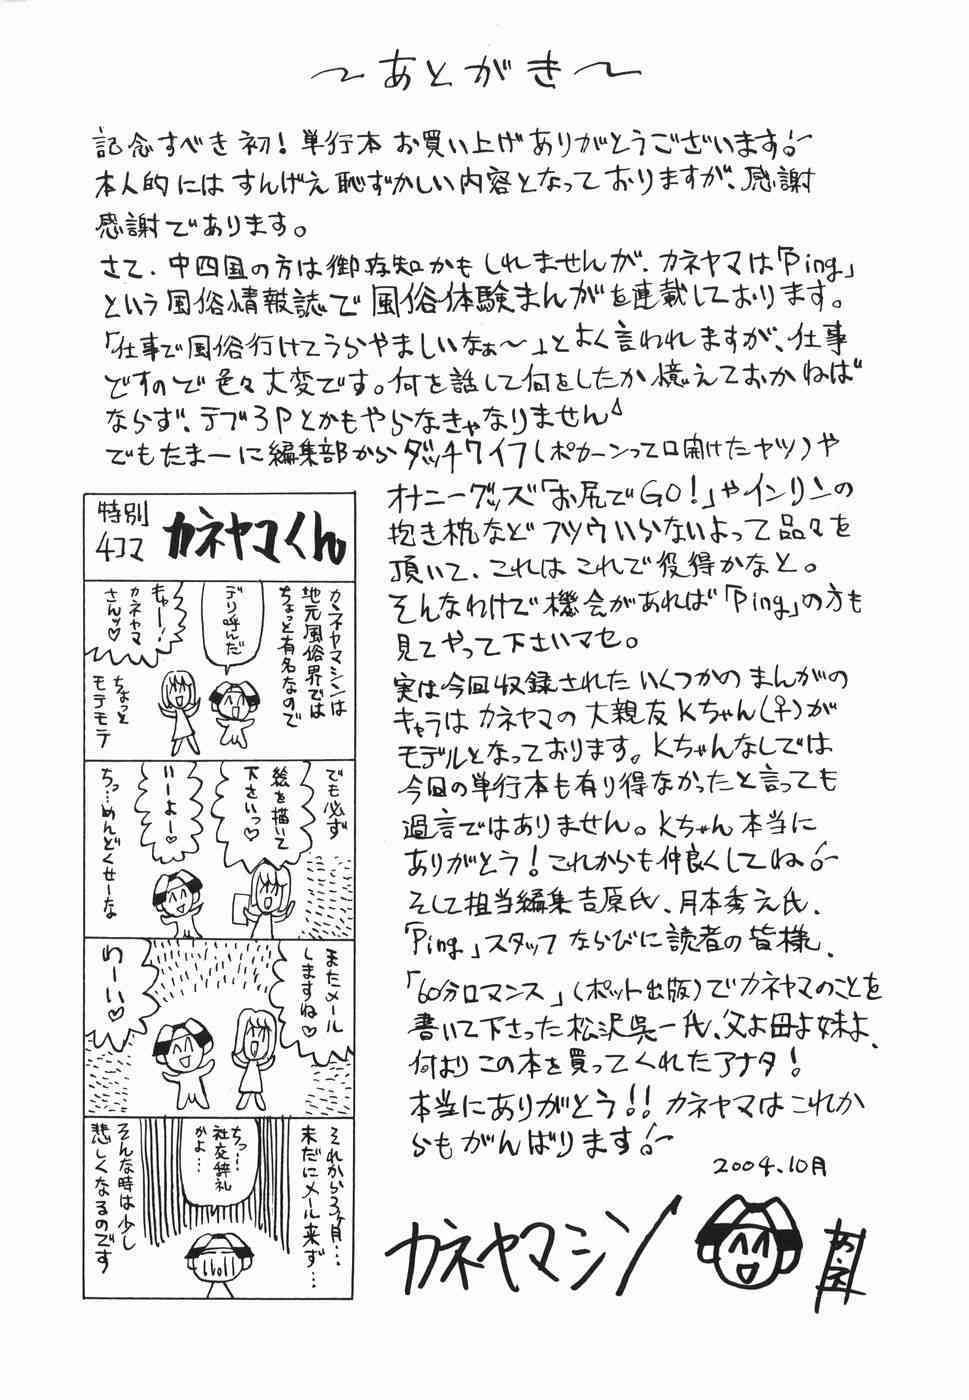 ～あとがき～
記念すべき初！単行本お買い上げありがとうございます。
本人的にはすんげえ恥ずかしい内容となっておりますが、感謝
感謝であります。
さて、中四国の方は御存知かもしれませんが、カネヤマは「Ping」
という風俗情報誌で風俗体験まんがを連載しております。
「仕事で風俗行けてうらやましいなぁ〜」とよく言われますが、仕事
ですので色々大変です。何を話して何をしたか憶えておかねば
ならず、デブ3Pとかもやらなきゃなりません
でもたまーに編集部からダッチワイフ(ポカーンって口開けたヤツ)や
オナニーグッズ「お尻でGO!」やインリンの
抱き枕などフツウいらないよって品々を
頂いて、これはこれで役得かなと。
そんなわけで機会があれば「Ping」の方も
見てやって下さいマセ。
実は今回収録されたいくつかのまんがの
キャラはカネヤマの大親友Kちゃん(♀)が
モデルとなっております。Kちゃんなしでは
今回の単行本も有り得なかったと言っても
過言ではありません。Kちゃん本当に
ありがとう！これからも仲良くしてね
そして担当編集吉原氏、月本秀え氏、
「Ping」スタッフならびに読者の皆様、
「60分ロマンス」(ポット出版)でカネヤマのことを
書いて下さった松沢呉一氏、父よ母よ妹よ、
何よりこの本を買ってくれたアナタ！
本当にありがとう!!カネヤマはこれか
らもがんばります
2004.10月
カネヤマシン
特別
4コマ
カネヤマくん
カネヤマシンは
地元風俗界では
ちょっと有名なので
デリ呼んだ
キャー！
カネヤマ
さんッ♡
ちょっと
モテモテ
でも必ず
絵を描いて
下さいっ♡
いーよー♡
ちっ…めんどくせーな
またメール
しますね♡
わーい♡
それから3ヶ月…
未だにメール来ず…
ちっ…
社交辞礼
かよ…
そんな時は少し
悲しくなるのです